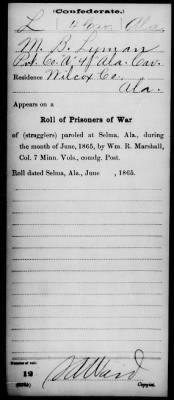 (Confederate.)
L 4 Cav. Ala.
M. B. Lyman
Pvt. Co. A, 4 Ala. Cav.
Residence Wilcox Co.
Ala.
Appears on a
Roll of Prisoners of War
of (stragglers) paroled at Selma, Ala., during
the month of June, 1865, by Wm. R. Marshall,
Col. 7 Minn. Vols., comdg. Post.
Roll dated Selma, Ala., June , 1865.
Number of roll:
19
Copyist.